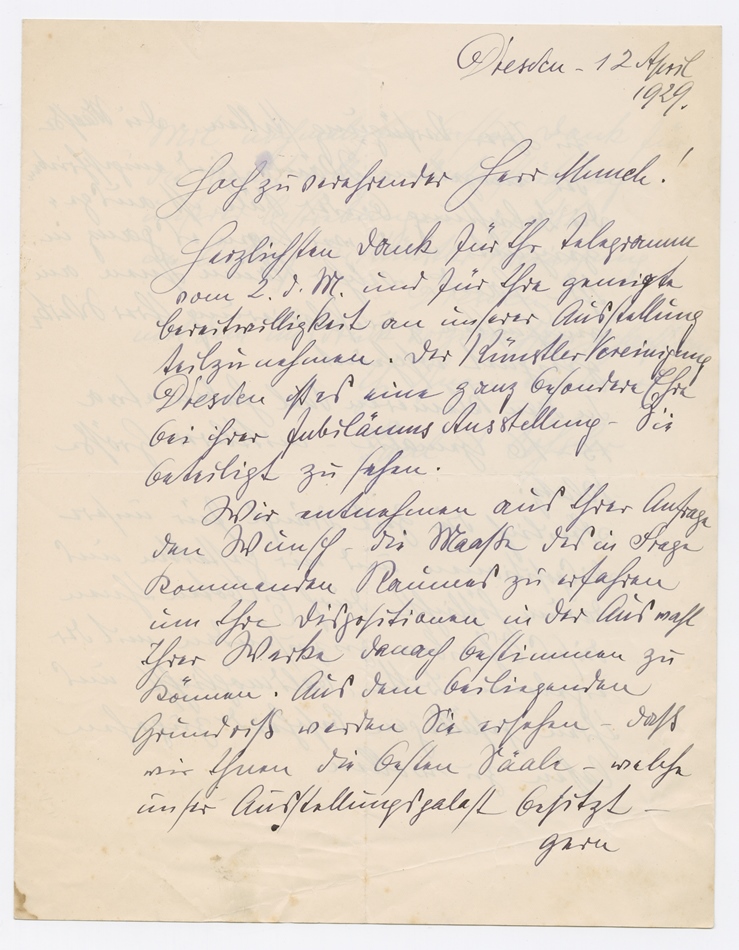 Dresden – 12 April
1929.
Hochzuverehrender Herr Munch!
Herzlichsten Dank für Ihr Telegramm
vom 2. d. M. und für Ihre geneigte
Bereitwilligkeit an unserer Ausstellung
teilzunehmen. Der Künstler Vereinigung
Dresden ist es eine ganz besondere Ehre
bei ihrer Jubiläums Ausstellung – Sie
beteiligt zu sehen.
Wir entnehmen aus Ihrer Anfrage
den Wunsch – die Maaße des in Frage
kommenden Raumes zu erfahren
um Ihre Dispositionen in der Auswahl
Ihrer Werke danach bestimmen zu
können. Aus dem beiliegenden
Grundriß werden Sie ersehen – daß
wir Ihnen die besten Sääle – welche
unser Ausstellungspalast besitzt –
gern